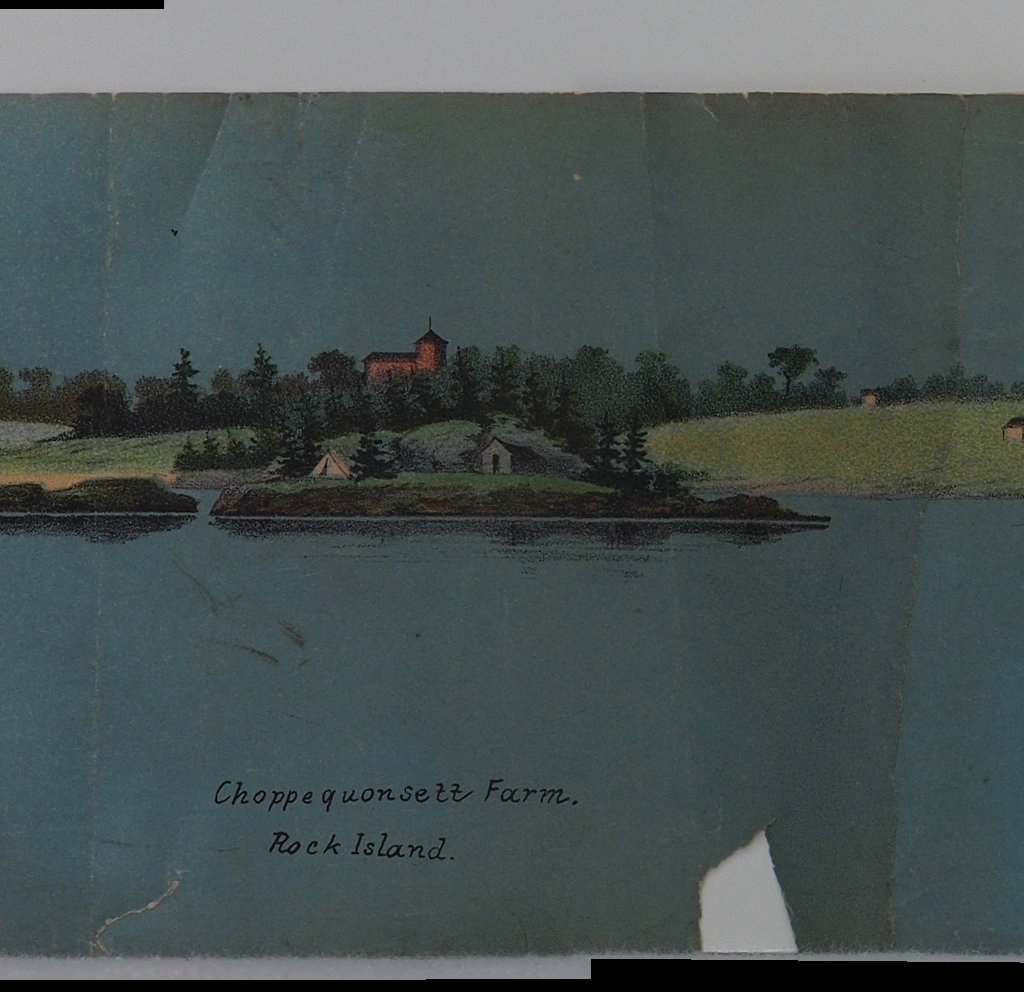 Choppequonsett Farm.
Rock Island.